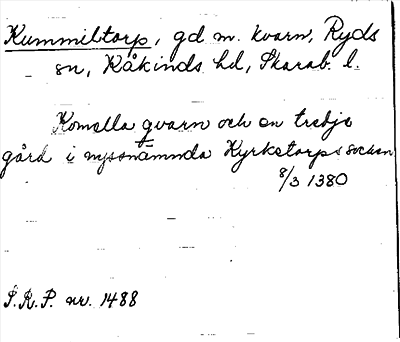 Kummiltorp, gd m. kvarn, Ryds
sn, Kåkinds hd, Skarab. l.
Komella qvarn och en tredje
gård i nyssnämnda Kyrketorps socken
8/3 1380
S.R.P. nr. 1488